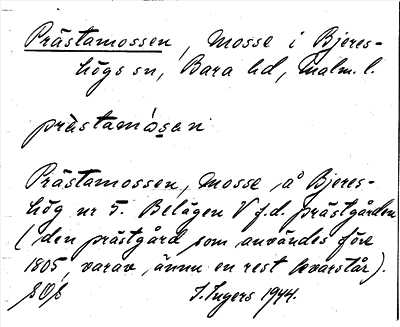 Prästamossen, Mosse i Bjeres-
högs sn, Bara hd, Malm. l.
prästamåsen
Prästamossen, Mosse å Bjeres-
hög nr 5. Belägen V f.d. prästgården
(den prästgård som användes före
1805, varav ännu en rest kvarstår).
I. Ingers 1944.